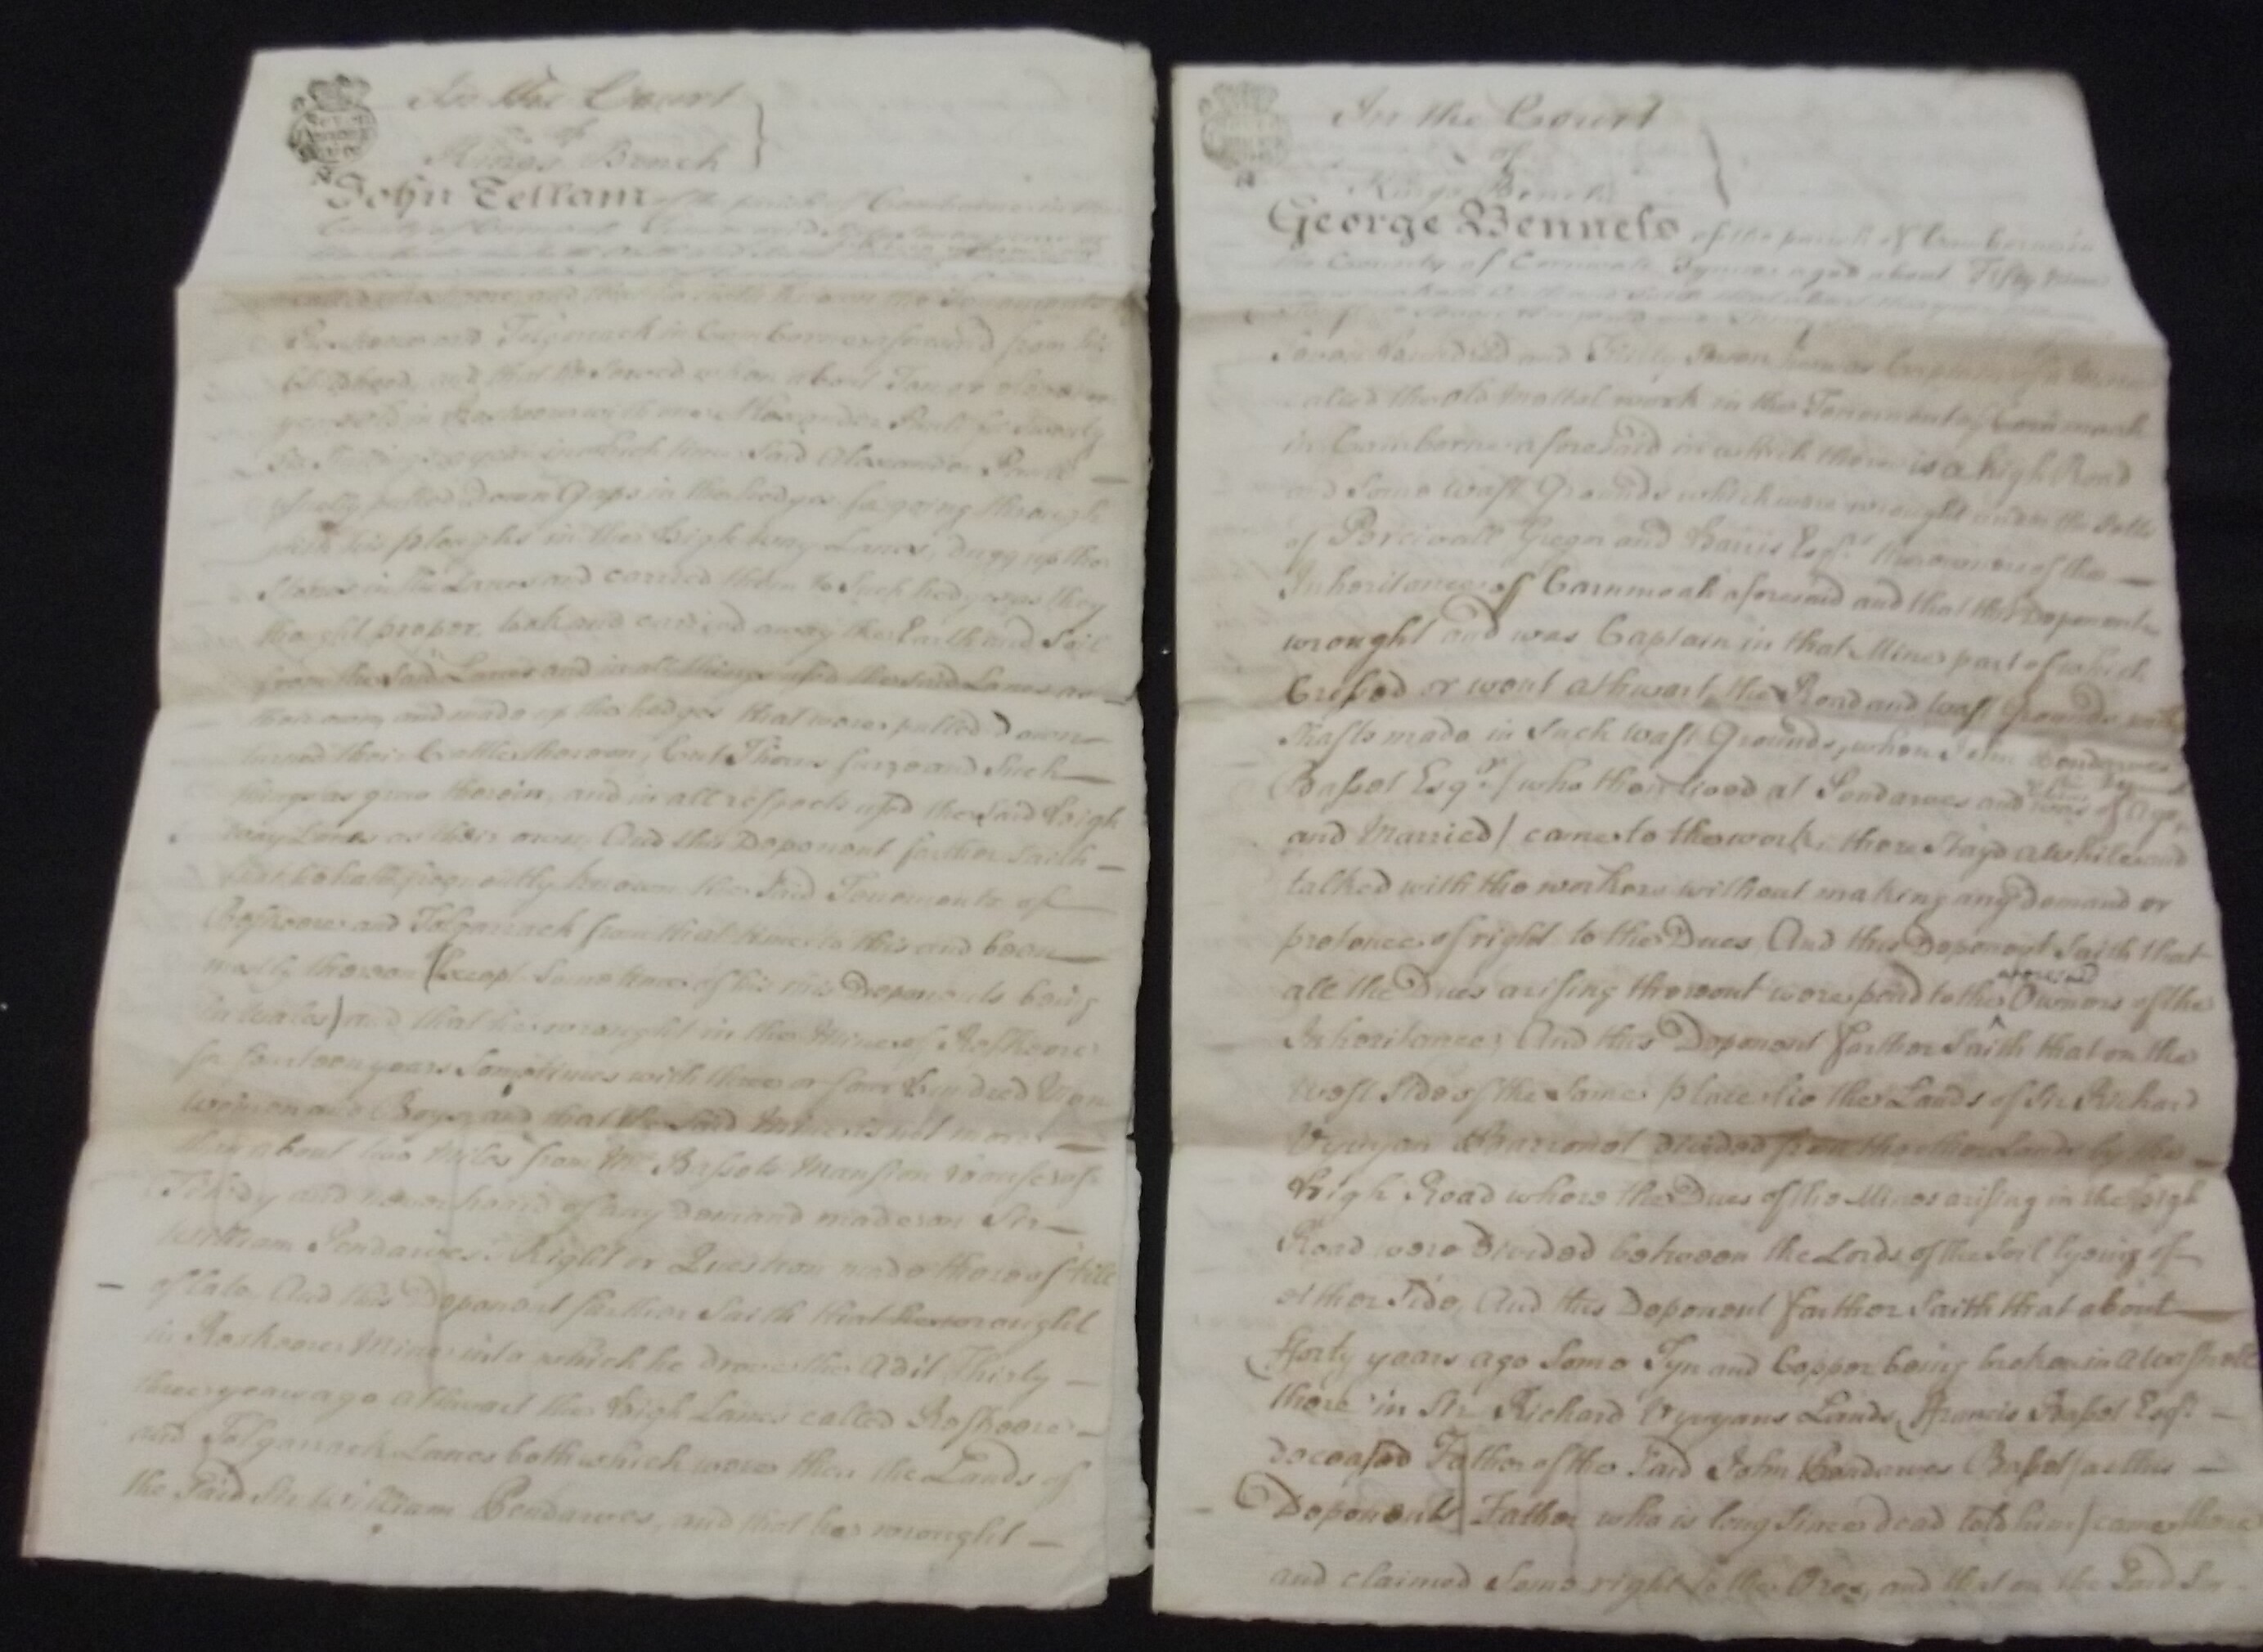 In the Court
of
Kings Bench
John Tellam of the parish of Camborne in the
County of Cornwall
and that he hath known the Tenements
Roskeere and Tolgarrack in Camborne aforesaid from his
Childhood, and that he served when about Ten or eleven
years old in Roskeere with one Alexander Paull for twenty
Six Shillings a year in which time said Alexander Paull
pulled down Gaps in the hedges for going through
with his ploughs in the High way Lanes, dugg up the
Stones in the Lanes and carried them to Such hedges as they
thought proper, took and carried away the Earth and Soil
from the said Lanes and in all things used the said Lanes as
their own, and made up the hedges that were pulled down
turned their Cattle thereon, Cut Thorns furze and Such
things as grew therein, and in all respects used the said high
way Lanes as their own And this Deponent farther saith
that he hath frequently known the said Tenements of
Roskeere and Tolgarrack from that time to this and been
mostly thereon (Except Some time of his this Deponents being
in Wales) and that he wrought in the Mine of Roskeere
for fourteen years Sometimes with three or four hundred Men
women and Boys and that the said Mine is not more
than about two Miles from Mr Bassets Mansion house of
Tehidy and never heard of any demand made on Sir
William Pendarves's Right or Question made thereof till
of late And this Deponent farther Saith that he wrought
in Roskeere Mine into which he drove the Adit Thirty
three years ago athwart the high Lanes called Roskeere
and Tolgarrack Lanes both which were then the Lands of
the said Sir William Pendarves, and that he wrought
In the Court
of
Kings Bench
George Bennets of the parish of Camborne in
the County of Cornwall Tynner aged about Fifty
Seven hundred and Thirty Seven
called the Old Mettal work in the Tenement of Carnmeah
in Camborne aforesaid in which there is a high Road
and some wast Grounds which were wrought under the Setts
of Percivall Gregor and Harris Esqrs. the owners of the
Inheritance of Carnmeah aforesaid and that this Deponent
wrought and was Captain in that Mine part of which
Crossed or went athwart the Road and wast Grounds with
Shafts made in Such wast Grounds, when John Pendarves
Basset Esqr. (who then lived at Pendarves and was of Age,
and Married) came to the work, there stayd a while and
talked with the workers without making any demand or
pretence of right to the Dues, And this Deponent Saith that
all the Dues arising thereout were paid to the Owners of the
Inheritance; And this Deponent farther Saith that on the
West side of the same place lie the Lands of Sir Richard
Vyvyan Barronet divided from the other Lands by the
high Road where the Dues of the Mines arising in the high
Road were divided between the Lords of the Soil lyeing of
either side, And this Deponent farther Saith that about
fforty years ago Some Tyn and Copper being broken in
there in Sir Richard Vyvyans Lands, ffrancis Basset Esqr.
deceased Father of the said John Pendarves Basset (as this
Deponents Father who is long Since dead told him) came there
and claimed Some right to the Ores, and that on the said Sir